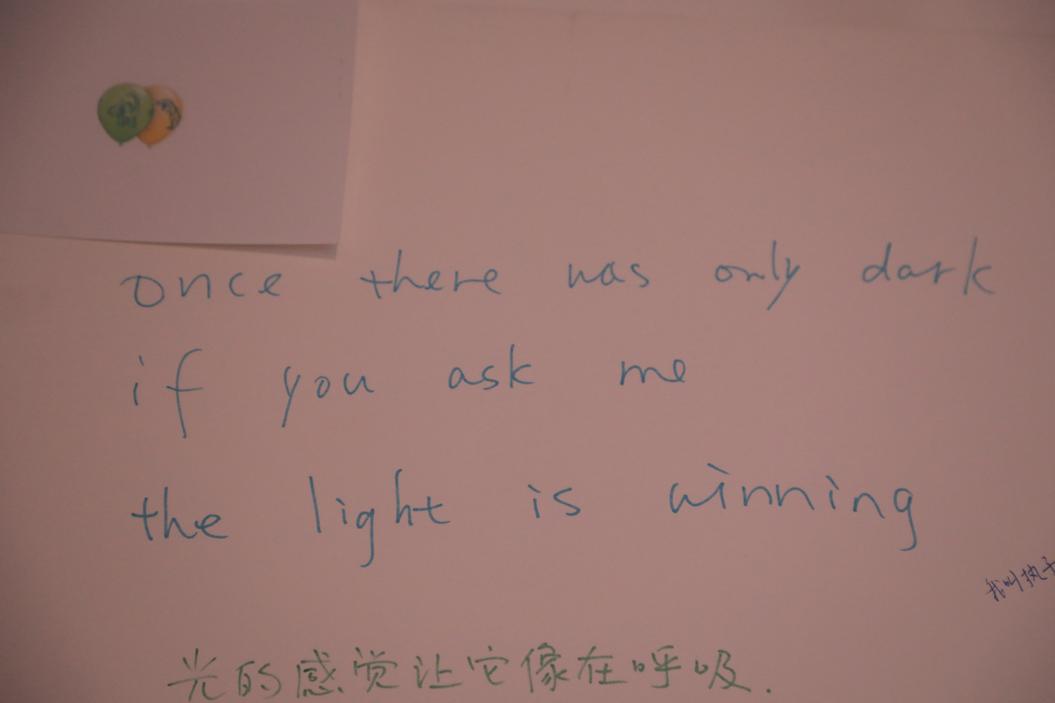 once there was only dark
if you ask me
the light is winning
我叫执子
光的感觉让它像在呼吸.